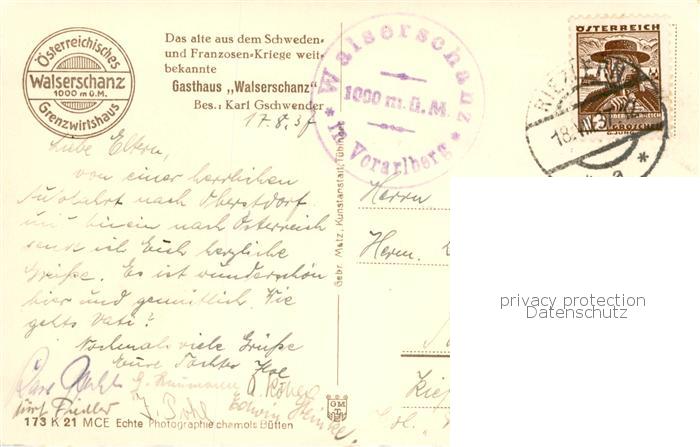 Österreichisches
Walserschanz
1000 m ü.M.
Grenzwirtshaus
Das alte aus dem Schweden-
und Franzosen-Kriege weit-
bekannte
Gasthaus „Walserschanz“
Bes.: Karl Gschwender
17.8.37
Walserschanz
1000 m.ü.M.
Vorarlberg
ÖSTERREICH
GROSCHEN
RIEZLERN
18.
Liebe Eltern,
von einer herrlichen
Autofahrt nach Oberstdorf
und hinein nach Österreich
sende ich Euch herzliche
Grüße. Es ist wunderschön
hier und gemütlich. Wie
gehts Vati?
Nochmals viele Grüße
Eure Tochter
Edwin
Fiedler J. Pohl
Gebr. Metz, Kunstanstalt, Tübingen
Herrn
Herm.
privacy protection
Datenschutz
GMT
173 K 21 MCE Echte Photographie chamois Bütten